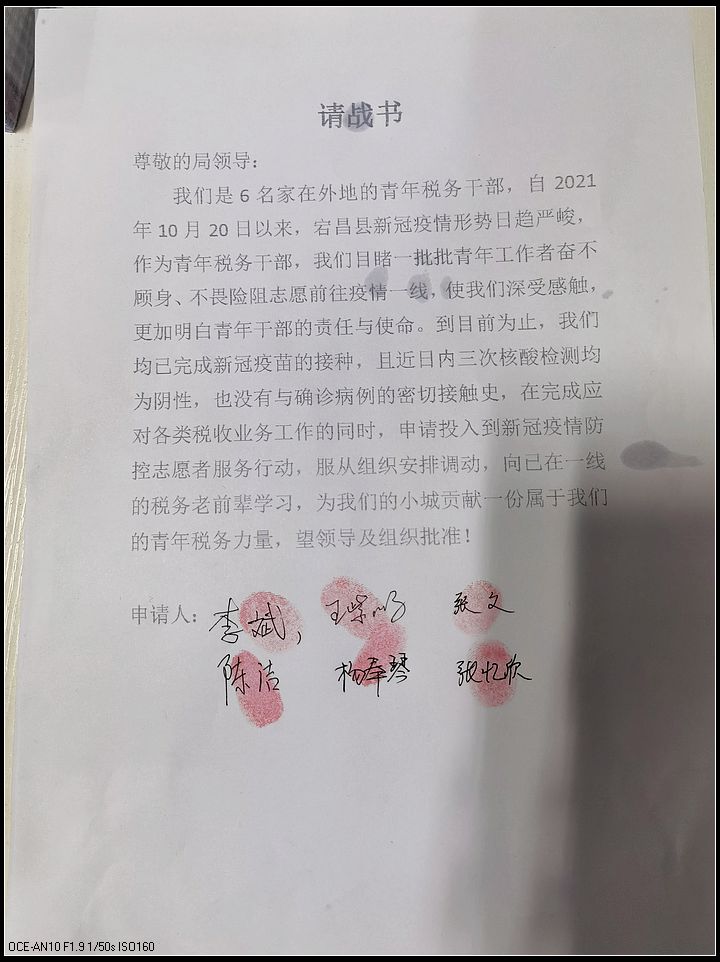 请战书
尊敬的局领导：
我们是 6 名家在外地的青年税务干部，自 2021
年 10 月 20 日以来，宕昌县新冠疫情形势日趋严峻，
作为青年税务干部，我们目睹一批批青年工作者奋不
顾身、不畏险阻志愿前往疫情一线，使我们深受感触，
更加明白青年干部的责任与使命。到目前为止，我们
均已完成新冠疫苗的接种，且近日内三次核酸检测均
为阴性，也没有与确诊病例的密切接触史，在完成应
对各类税收业务工作的同时，申请投入到新冠疫情防
控志愿者服务行动，服从组织安排调动，向已在一线
的税务老前辈学习，为我们的小城贡献一份属于我们
的青年税务力量，望领导及组织批准！
申请人：李斌， 张文
陈洁 杨奉琴 张忆欣
OCE-AN10 F1.9 1/50s ISO160